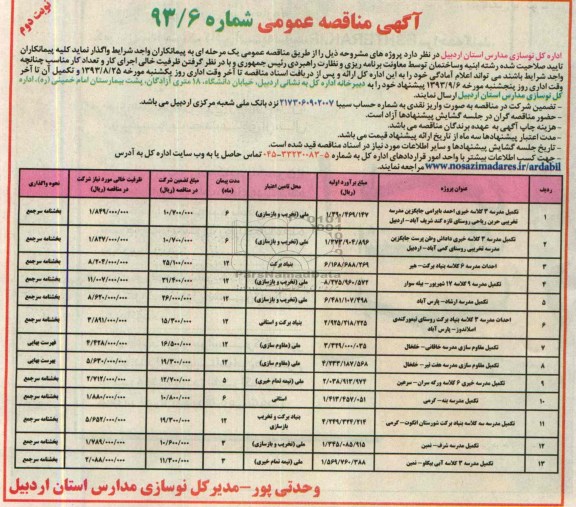 آگهی مناقصه عمومی شماره ۹۳/۶
نوبت دوم
اداره کل نوسازی مدارس استان اردبیل در نظر دارد پروژه های مشروحه ذیل را از طریق مناقصه عمومی یک مرحله ای به پیمانکاران واجد شرایط واگذار نماید کلیه پیمانکاران
تایید صلاحیت شده رشته ابنیه وساختمان توسط معاونت برنامه ریزی و نظارت راهبردی رئیس جمهوری و با در نظر گرفتن ظرفیت خالی اجرای کار و تعداد کار مناسب چنانچه
واجد شرایط باشند می تواند اعلام آمادگی خود را به این اداره کل ارائه و پس از دریافت اسناد مناقصه تا آخر وقت اداری روز یکشنبه مورخه ۱۳۹۳/۸/۲۵ و تکمیل آن تا آخر
وقت اداری روز پنجشنبه مورخه ۱۳۹۳/۹/۶ پیشنهاد خود را به دبیرخانه اداره کل به نشانی اردبیل، خیابان دانشگاه، ۱۸ متری آزادگان، پشت بیمارستان امام خمینی (ره)، اداره
کل نوسازی مدارس استان اردبیل ارسال نمایند.
- تضمین شرکت در مناقصه به صورت واریز نقدی به شماره حساب سیبا ۲۱۷۳۰۶۰۹۰۲۰۰۷ نزد بانک ملی شعبه مرکزی اردبیل می باشد.
- حضور مناقصه گران در جلسه گشایش پیشنهادها آزاد است.
- هزینه چاپ آگهی به عهده برندگان مناقصه می باشد.
- مدت اعتبار پیشنهادها سه ماه از تاریخ ارائه پیشنهاد قیمت می باشد.
- تاریخ جلسه گشایش پیشنهادها و سایر اطلاعات مورد نیاز در اسناد مناقصه قید شده است.
- جهت کسب اطلاعات بیشتر با واحد امور قراردادهای اداره کل به شماره ۵-۰۴۵۳۳۲۳۰۰۸۳ تماس حاصل یا به وب سایت اداره کل به آدرس
www.nosazimadares.ir/ardabil مراجعه نمایند.
ردیف عنوان پروژه مبلغ برآورد اولیه (ریال) محل تامین اعتبار مدت پیمان (ماه) مبلغ تضمین شرکت در مناقصه (ریال) ظرفیت خالی مورد نیاز شرکت در مناقصه (ریال) نحوه واگذاری
۱ تکمیل مدرسه ۳ کلاسه خیری احمد بایرامی جایگزین مدرسه تخریبی حربن ریاحی روستای تازه کند شریف آباد- اردبیل ۱/۳۹۰/۴۶۹/۱۴۷ ملی (تخریب و بازسازی) ۶ ۱۰/۷۰۰/۰۰۰ ۱/۸۴۹/۰۰۰/۰۰۰ بخشنامه سرجمع
۲ تکمیل مدرسه ۳ کلاسه خیری داداش وطن پرست جایگزین مدرسه تخریبی روستای کمی آباد- اردبیل ۱/۳۷۳/۹۰۴/۸۹۶ ملی (تخریب و بازسازی) ۶ ۱۰/۷۰۰/۰۰۰ ۱/۸۲۷/۰۰۰/۰۰۰ بخشنامه سرجمع
۳ احداث مدرسه ۶ کلاسه بنیاد برکت- هیر ۶/۱۶۸/۶۸۸/۲۶۹ بنیاد برکت ۱۲ ۲۵/۱۰۰/۰۰۰ ۸/۲۰۴/۰۰۰/۰۰۰ بخشنامه سرجمع
۴ تکمیل مدرسه ۹ کلاسه ۱۷ شهریور- بیله سوار ۸/۲۷۵/۹۶۰/۵۷۲ ملی (تخریب و بازسازی) ۱۲ ۳۱/۴۰۰/۰۰۰ ۱۱/۰۰۷/۰۰۰/۰۰۰ بخشنامه سرجمع
۵ تکمیل مدرسه ارشاد- پارس آباد ۶/۴۸۱/۱۰۷/۴۹۸ ملی (تخریب و بازسازی) ۱۲ ۲۶/۰۰۰/۰۰۰ ۸/۶۲۰/۰۰۰/۰۰۰ بخشنامه سرجمع
۶ احداث مدرسه ۳ کلاسه بنیاد برکت روستای تیمورکندی اصلاندوز- پارس آباد ۲/۹۲۵/۲۱۸/۲۲۵ بنیاد برکت و استانی ۱۲ ۱۵/۳۰۰/۰۰۰ ۳/۸۹۱/۰۰۰/۰۰۰ بخشنامه سرجمع
۷ تکمیل مقاوم سازی مدرسه خاقانی- خلخال ۳/۳۲۹/۰۰۰/۰۳۵ ملی (مقاوم سازی) ۱۲ ۱۶/۵۰۰/۰۰۰ ۴/۴۲۸/۰۰۰/۰۰۰ فهرست بهایی
۸ تکمیل مقاوم سازی مدرسه هفت تیر- خلخال ۴/۲۳۳/۱۸۷/۵۶۸ ملی (مقاوم سازی) ۱۲ ۱۹/۳۰۰/۰۰۰ ۵/۶۳۰/۰۰۰/۰۰۰ فهرست بهایی
۹ تکمیل مدرسه خیری ۶ کلاسه ورگه سران- سرعین ۲/۰۳۸/۹۱۳/۹۷۴ ملی (نیمه تمام خیری) ۵ ۱۲/۷۰۰/۰۰۰ ۲/۷۱۲/۰۰۰/۰۰۰ بخشنامه سرجمع
۱۰ تکمیل مدرسه پند- گرمی ۱/۴۱۳/۴۵۷/۰۵۱ استانی ۶ ۱۰/۸۰۰/۰۰۰ ۱/۸۸۰/۰۰۰/۰۰۰ بخشنامه سرجمع
۱۱ تکمیل مدرسه سه کلاسه بنیاد برکت شورستان انگوت- گرمی ۴/۲۴۹/۳۲۲/۲۱۴ بنیاد برکت و تخریب بازسازی ۱۲ ۱۹/۳۰۰/۰۰۰ ۵/۶۵۲/۰۰۰/۰۰۰ بخشنامه سرجمع
۱۲ تکمیل مدرسه شرف- نمین ۱/۳۴۵/۰۸۵/۹۱۵ ملی (تخریب و بازسازی) ۳ ۱۰/۶۰۰/۰۰۰ ۱/۷۸۹/۰۰۰/۰۰۰ بخشنامه سرجمع
۱۳ تکمیل مدرسه ۳ کلاسه آبی بیگلو- نمین ۱/۵۶۹/۷۶۰/۳۸۸ ملی (نیمه تمام خیری) ۳ ۱۱/۳۰۰/۰۰۰ ۲/۰۸۸/۰۰۰/۰۰۰ بخشنامه سرجمع
وحدتی پور-مدیرکل نوسازی مدارس استان اردبیل